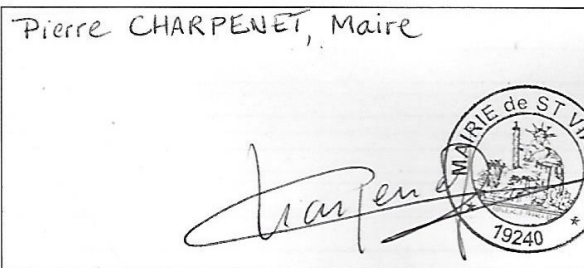 Pierre CHARPENET, Maire
Charpenet
MAIRIE de ST VI
19240